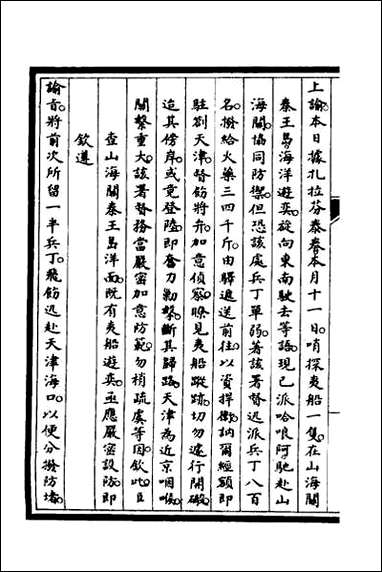 上諭本日據扎拉芬泰奏本月十一日哨探夷船一隻在山海關
秦王島海洋遊奕旋向東南駛去等語現已派哈哴阿馳赴山
海關協同防禦但恐該處兵丁單弱著該署督迅派兵丁八百
名撥給火藥三四千斤由驛遞送前往以資捍衛訥爾經額即
駐劄天津督飭將弁加意偵察瞭見夷船蹤跡切勿遽行開礮
追其傍岸或竟登陸即奮刀勦擊斷其歸路天津為近京咽喉
關繫重大該署督務當嚴密加意防範勿稍疏虞等因欽此臣
查山海關秦王島洋面既有夷船遊奕亟應嚴密設防即
欽遵
諭旨將前次所留一半兵丁飛飭迅赴天津海口以便分撥防堵